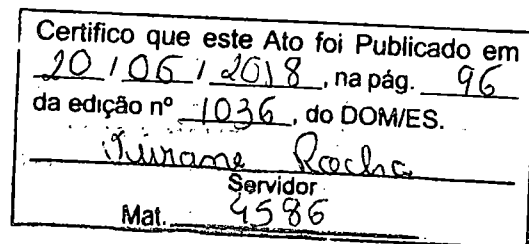 Certifico que este Ato foi Publicado em
20 / 06 / 2018, na pág. 96
da edição nº 1036, do DOM/ES.
Rocha
Servidor
Mat. 4586